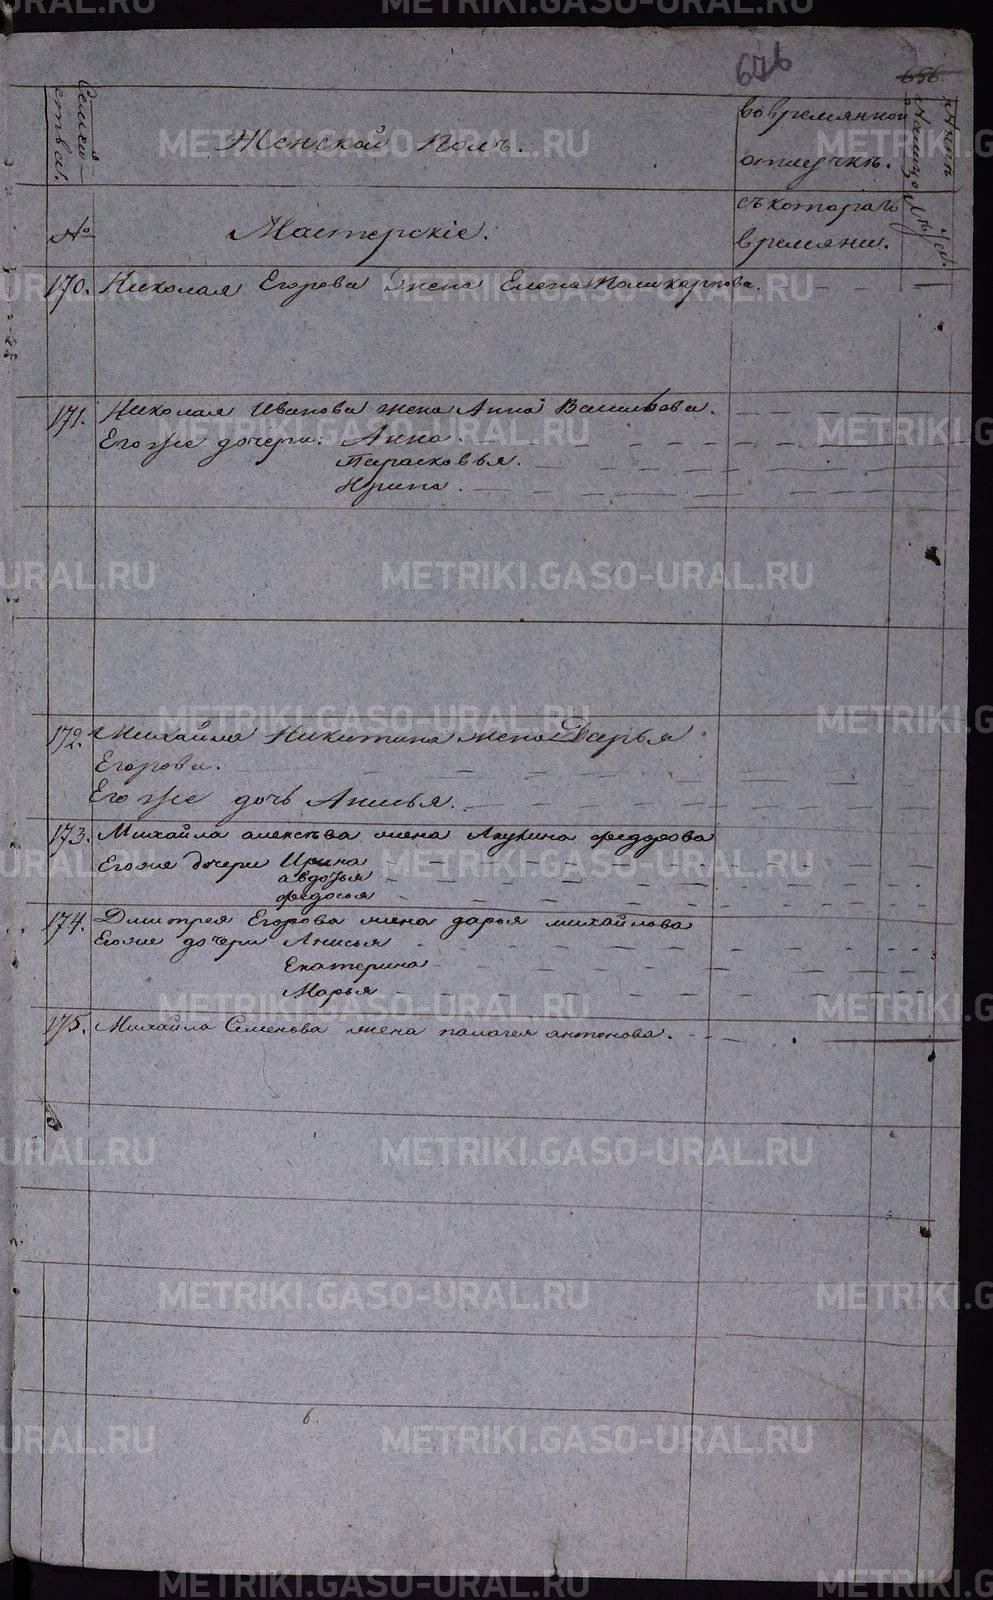 646
656
Семей-
ства.
Женской полъ.
во времянной
отлучкѣ.
Нынѣ
Налицо
Лѣты.
№
Мастерскіе.
съ котораго
времяни.
170. Николая Егорова жена Елена Поликарпова.
171. Николая Иванова жена Анна Васильева.
Его же дочери: Анна.
Парасковья.
Ирина.
172. Михайла Никитина жена Дарья
Егорова.
Его же дочь Анисья.
173. Михайла алексѣва жена Акулина федорова
Егоже дочери Ирина
авдотья
федосья
174. Дмитрея Егорова жена дарья михайлова
Егоже дочери Анисья
Екатерина
Марья
175. Михайла Семенова жена палагея антонова.
METRIKI.GASO-URAL.RU